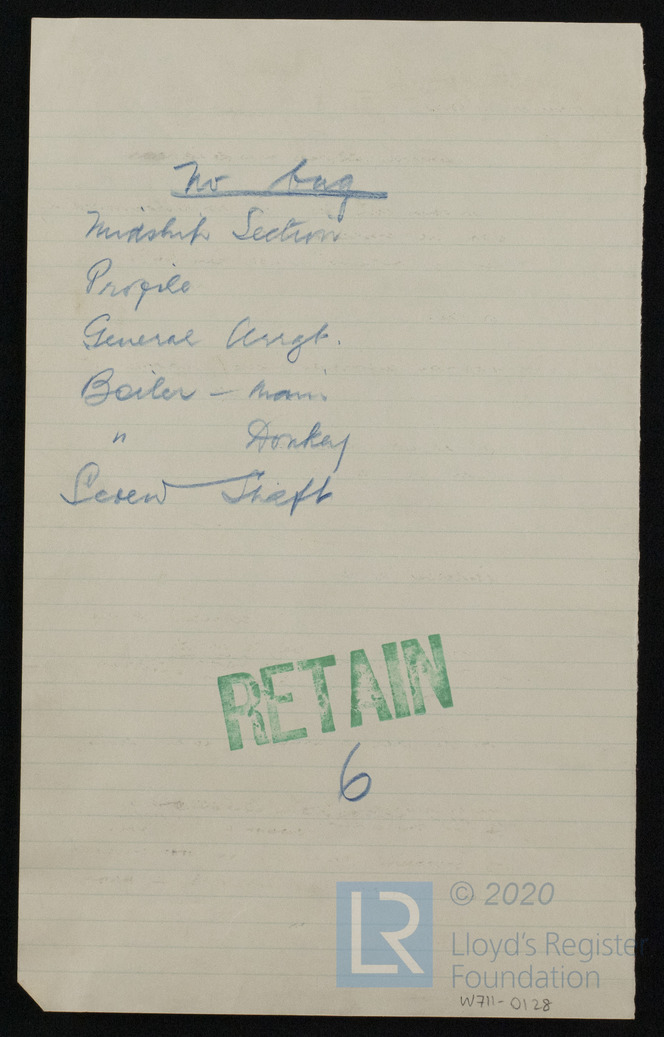 No bag
Midship Section
Profile
General Arrgt.
Boiler - Main
" Donkey
Screw Shaft
RETAIN
6
LR
© 2020
Lloyd's Register
Foundation
W711-0128